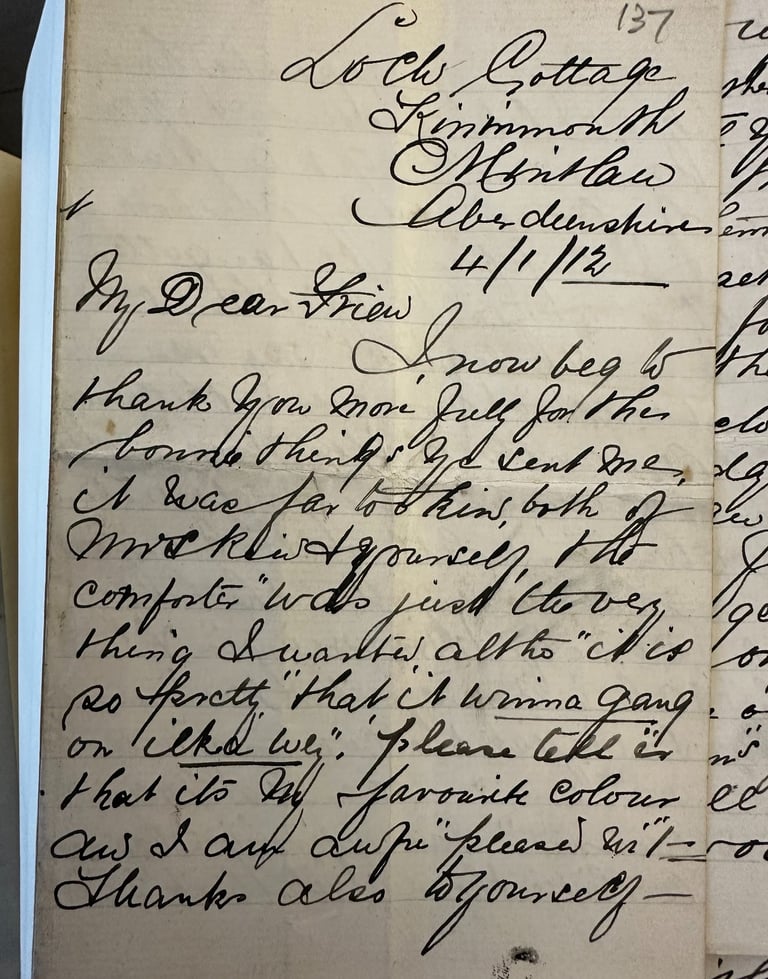 137
Loch Cottage
Kininmonth
Mintlaw
Aberdeenshire
4/1/12
My Dear Frien
I now beg to
thank you more fully for the
bonnie things ye sent me,
it was far too kin, both of
Mrs & yourself, the
comforter "was just the very
thing I wanted, altho "it is
so pretty" that it winna gang
on ilka wey". please tell er
that its my favourite colour
and I am awfu" pleased wi't —
Thanks also to yourself —